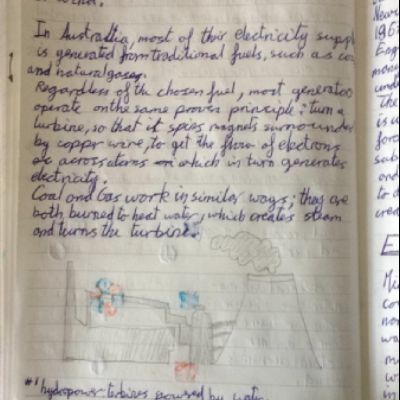 In Australia, most of their electricity supply
is generated from traditional fuels, such as co
and natural gases.
Regardless of the chosen fuel, most generators
operate on the same proven principle: turn a
turbine, so that it spins magnets surrounded
by copper wire, to get the flow of electrons
across atoms which in turn generates
electricity.
Coal and Gas work in similar ways; they are
both burned to heat water, which creates steam
and turns the turbine.
#1 hydropower turbines powered by water